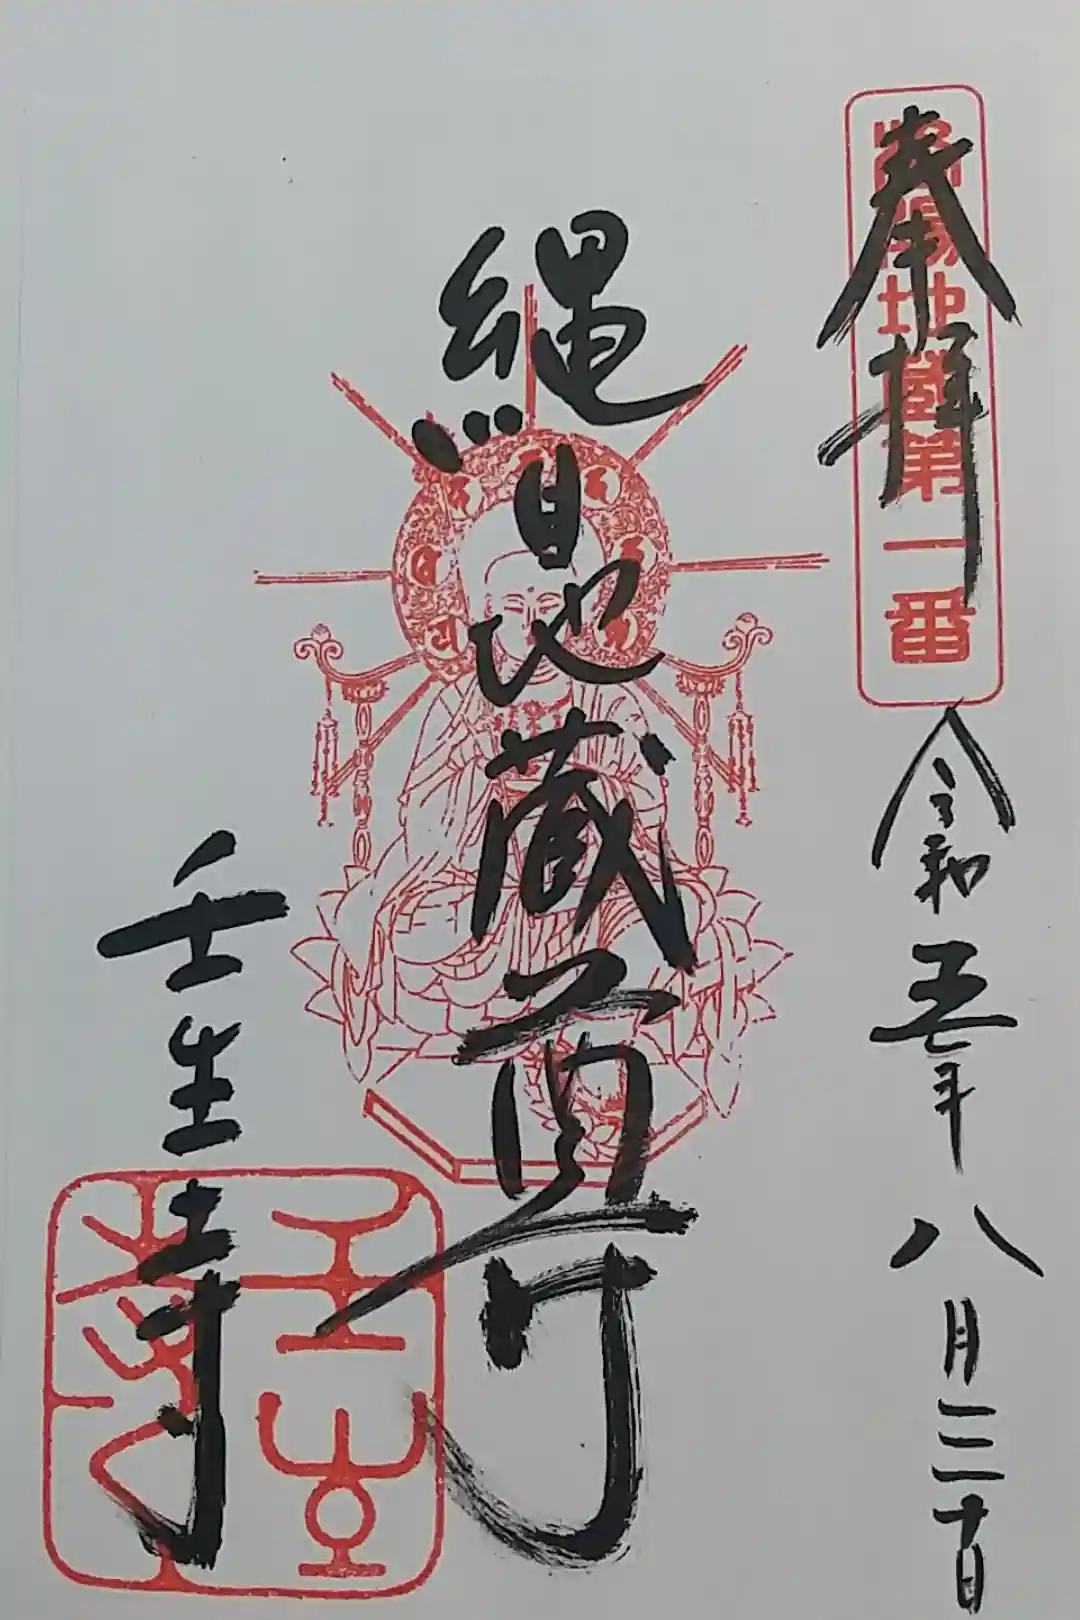 奉拝
洛陽地蔵第一番
令和五年八月三十日
縄目地蔵尊
壬生寺